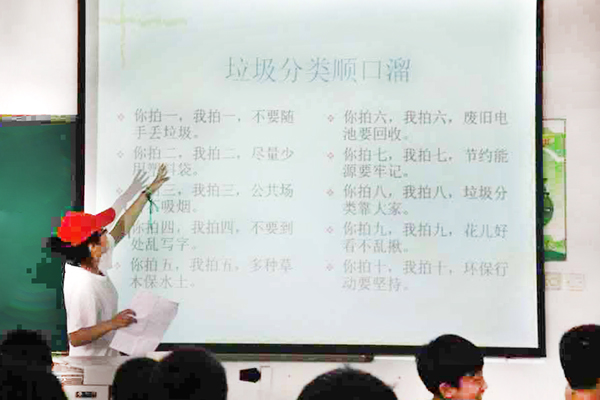 垃圾分类顺口溜
你拍一，我拍一，不要随
手丢垃圾。
你拍二，我拍二，尽量少
用塑料袋。
你拍三，我拍三，公共场
吸烟。
你拍四，我拍四，不要到
处乱写字。
你拍五，我拍五，多种草
木保水土。
你拍六，我拍六，废旧电
池要回收。
你拍七，我拍七，节约能
源要牢记。
你拍八，我拍八，垃圾分
类靠人家。
你拍九，我拍九，花儿好
看不乱揪。
你拍十，我拍十，环保行
动要坚持。